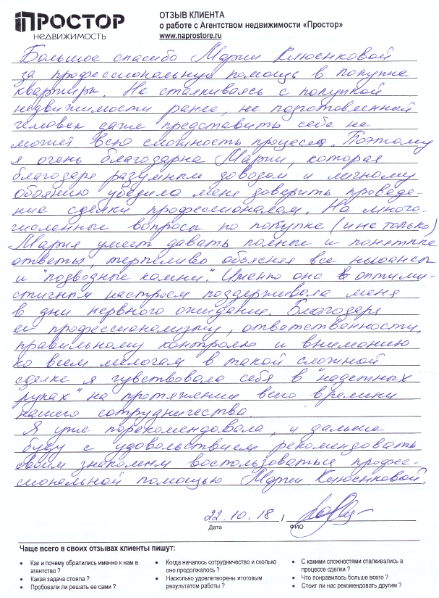 ПРОСТОР
НЕДВИЖИМОСТЬ
ОТЗЫВ КЛИЕНТА
о работе с Агентством недвижимости «Простор»
www.naprostore.ru
Большое спасибо Марии Клюенковой
за профессиональную помощь в покупке
квартиры. Не сталкиваясь с покупкой
недвижимости ранее, не подготовленный
человек даже представить себе не
может всю сложность процесса. Поэтому
я очень благодарна Марии, которая
благодаря разумным доводам и личному
обаянию убедила меня доверить проведе-
ние сделки профессионалам. На много-
численные вопросы по покупке (и не только)
Мария умеет давать полные и понятные
ответы, терпеливо объясняя все нюансы
и "подводные камни". Именно она оптими-
стичным настроем поддерживала меня
в дни нервного ожидания. Благодаря
её профессионализму, ответственности,
правильному контролю и вниманию
ко всем мелочам в такой сложной
сделке я чувствовала себя в "надежных
руках" на протяжении всего времени
нашего сотрудничества
Я уже порекомендовала, и дальше
буду с удовольствием рекомендовать
своим знакомым воспользоваться профес-
сиональной помощью Марии Клюенковой.
22.10.18,
Дата
ФИО
Чаще всего в своих отзывах клиенты пишут:
• Как и почему обратились именно к нам в агентство ?
• Какая задача стояла ?
• Пробовали ли решать ее сами ?
• Когда началось сотрудничество и сколько оно продолжалось ?
• Насколько удовлетворены итоговым результатом работы ?
• С какими сложностями сталкивались в процессе сделки ?
• Что понравилось больше всего ?
• Стоит ли нас рекомендовать другим ?